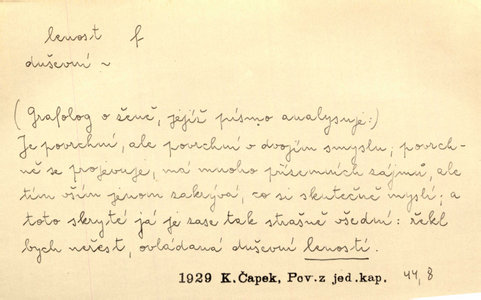 lenost f
duševní ~
(Grafolog o ženě, jejíž písmo analysuje:)
Je povrchní, ale povrchní v dvojím smyslu; povrch-
ně se projevuje, má mnoho přízemních zájmů, ale
tím vším jenom zakrývá, co si skutečně myslí; a
toto skryté já je zase tak strašně všední: řekl
bych neřest, ovládaná duševní leností.
1929 K.Čapek, Pov.z jed.kap. 44, 8